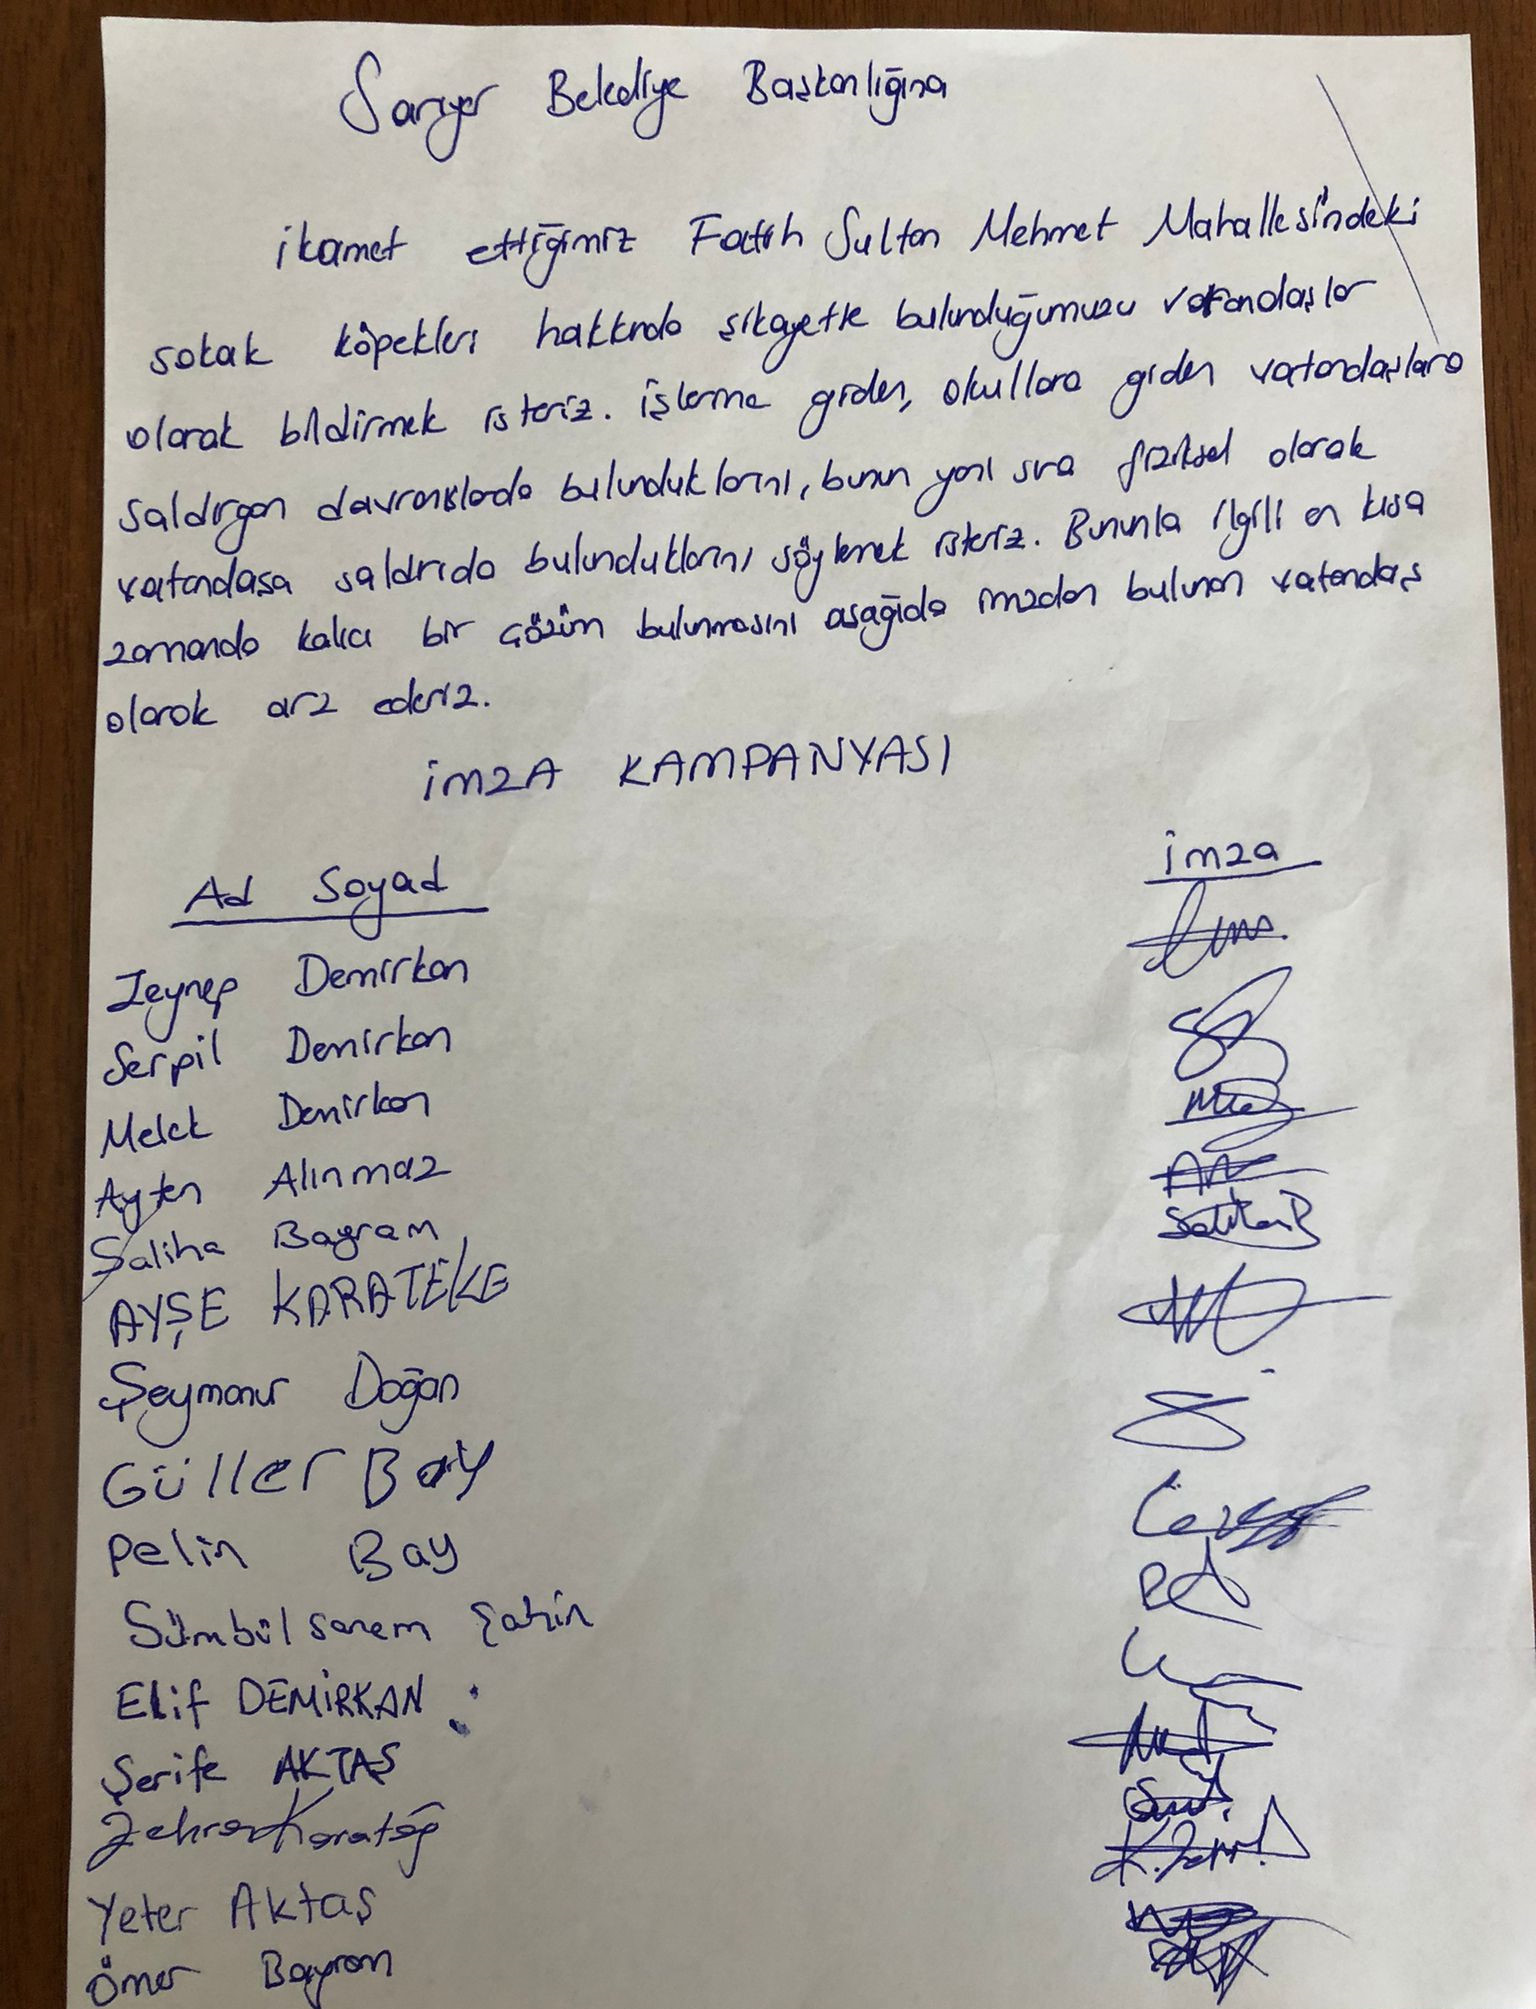 Sarıyer Belediye Başkanlığına
ikamet ettiğimiz Fatih Sultan Mehmet Mahallesindeki
sokak köpekleri hakkında şikayette bulunduğumuzu vatandaşlar
olarak bildirmek isteriz. İşlerine giden, okullara giden vatandaşlara
saldırgan davranışlarda bulunduklarını, bunun yanı sıra fiziksel olarak
vatandaşa saldırıda bulunduklarını söylemek isteriz. Bununla ilgili en kısa
zamanda kalıcı bir çözüm bulunmasını aşağıda imzaları bulunan vatandaş
olarak arz ederiz.
İMZA KAMPANYASI
Ad Soyad İmza
Zeynep Demirkan
Serpil Demirkan
Melek Demirkan
Ayten Alınmaz
Saliha Bayram
AYŞE KARATEKE
Şeymanur Doğan
Güller Bay
Pelin Bay
Sümbül sanem Şahin
Elif DEMİRKAN
Şerife AKTAŞ
Zehra
Yeter Aktaş
Ömer Bayram